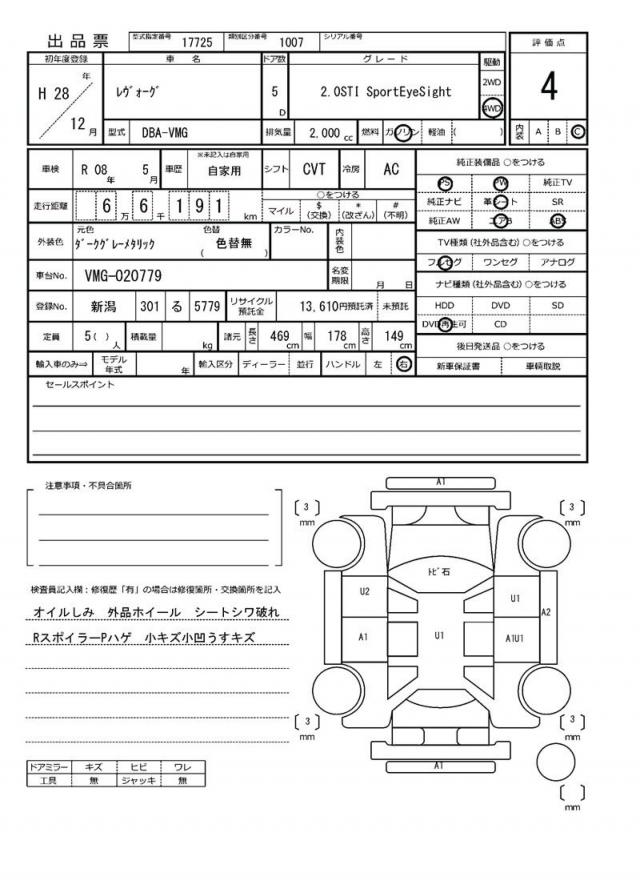 出品票 型式指定番号 17725 類別区分番号 1007 シリアル番号
初年度登録 車名 ドア数 グレード 駆動 評価点
H 28 年 12 月 ﾚｳﾞｫｰｸﾞ 5 D 2.0STI SportEyeSight 2WD 4WD 4
型式 DBA-VMG 排気量 2,000 cc 燃料 ガソリン 軽油 ( ) 内装 A B C
車検 R 08 年 5 月 車歴 ※未記入は自家用 自家用 シフト CVT 冷房 AC
走行距離 6 6 万 6 千 1 9 1 km ○をつける マイル $ (交換) * (改ざん) # (不明)
外装色 元色 ﾀﾞｰｸｸﾞﾚｰﾒﾀﾘｯｸ 色替 ( 色替無 ) カラーNo. 内装色
車台No. VMG-020779 名変期限 月 日
登録No. 新潟 301 る 5779 リサイクル預託金 13,610円預託済 未預託
定員 5( ) 人 積載量 kg 諸元 長さ 469 cm 幅 178 cm 高さ 149 cm
輸入車のみ⇒ モデル年式 年 輸入区分 ディーラー 並行 ハンドル 左 右
純正装備品 ○をつける
PS PW 純正TV
純正ナビ 革シート SR
純正AW エアB ABS
TV種類 (社外品含む) ○をつける
フルセグ ワンセグ アナログ
ナビ種類 (社外品含む) ○をつける
HDD DVD SD
DVD再生可 CD
後日発送品 ○をつける
新車保証書 車輌取説
セールスポイント
注意事項・不具合箇所
検査員記入欄：修復歴「有」の場合は修復箇所・交換箇所を記入
オイルしみ 外品ホイール シートシワ破れ
RスポイラーPハゲ 小キズ小凹うすキズ
ドアミラー キズ ヒビ ワレ
工具 無 ジャッキ 無
A1
[ 3 ] mm [ 3 ] mm
ﾄﾋﾞ石
U2 U1
A2
A1 U1 A1U1
[ 3 ] mm [ 3 ] mm
A1
[ ] mm